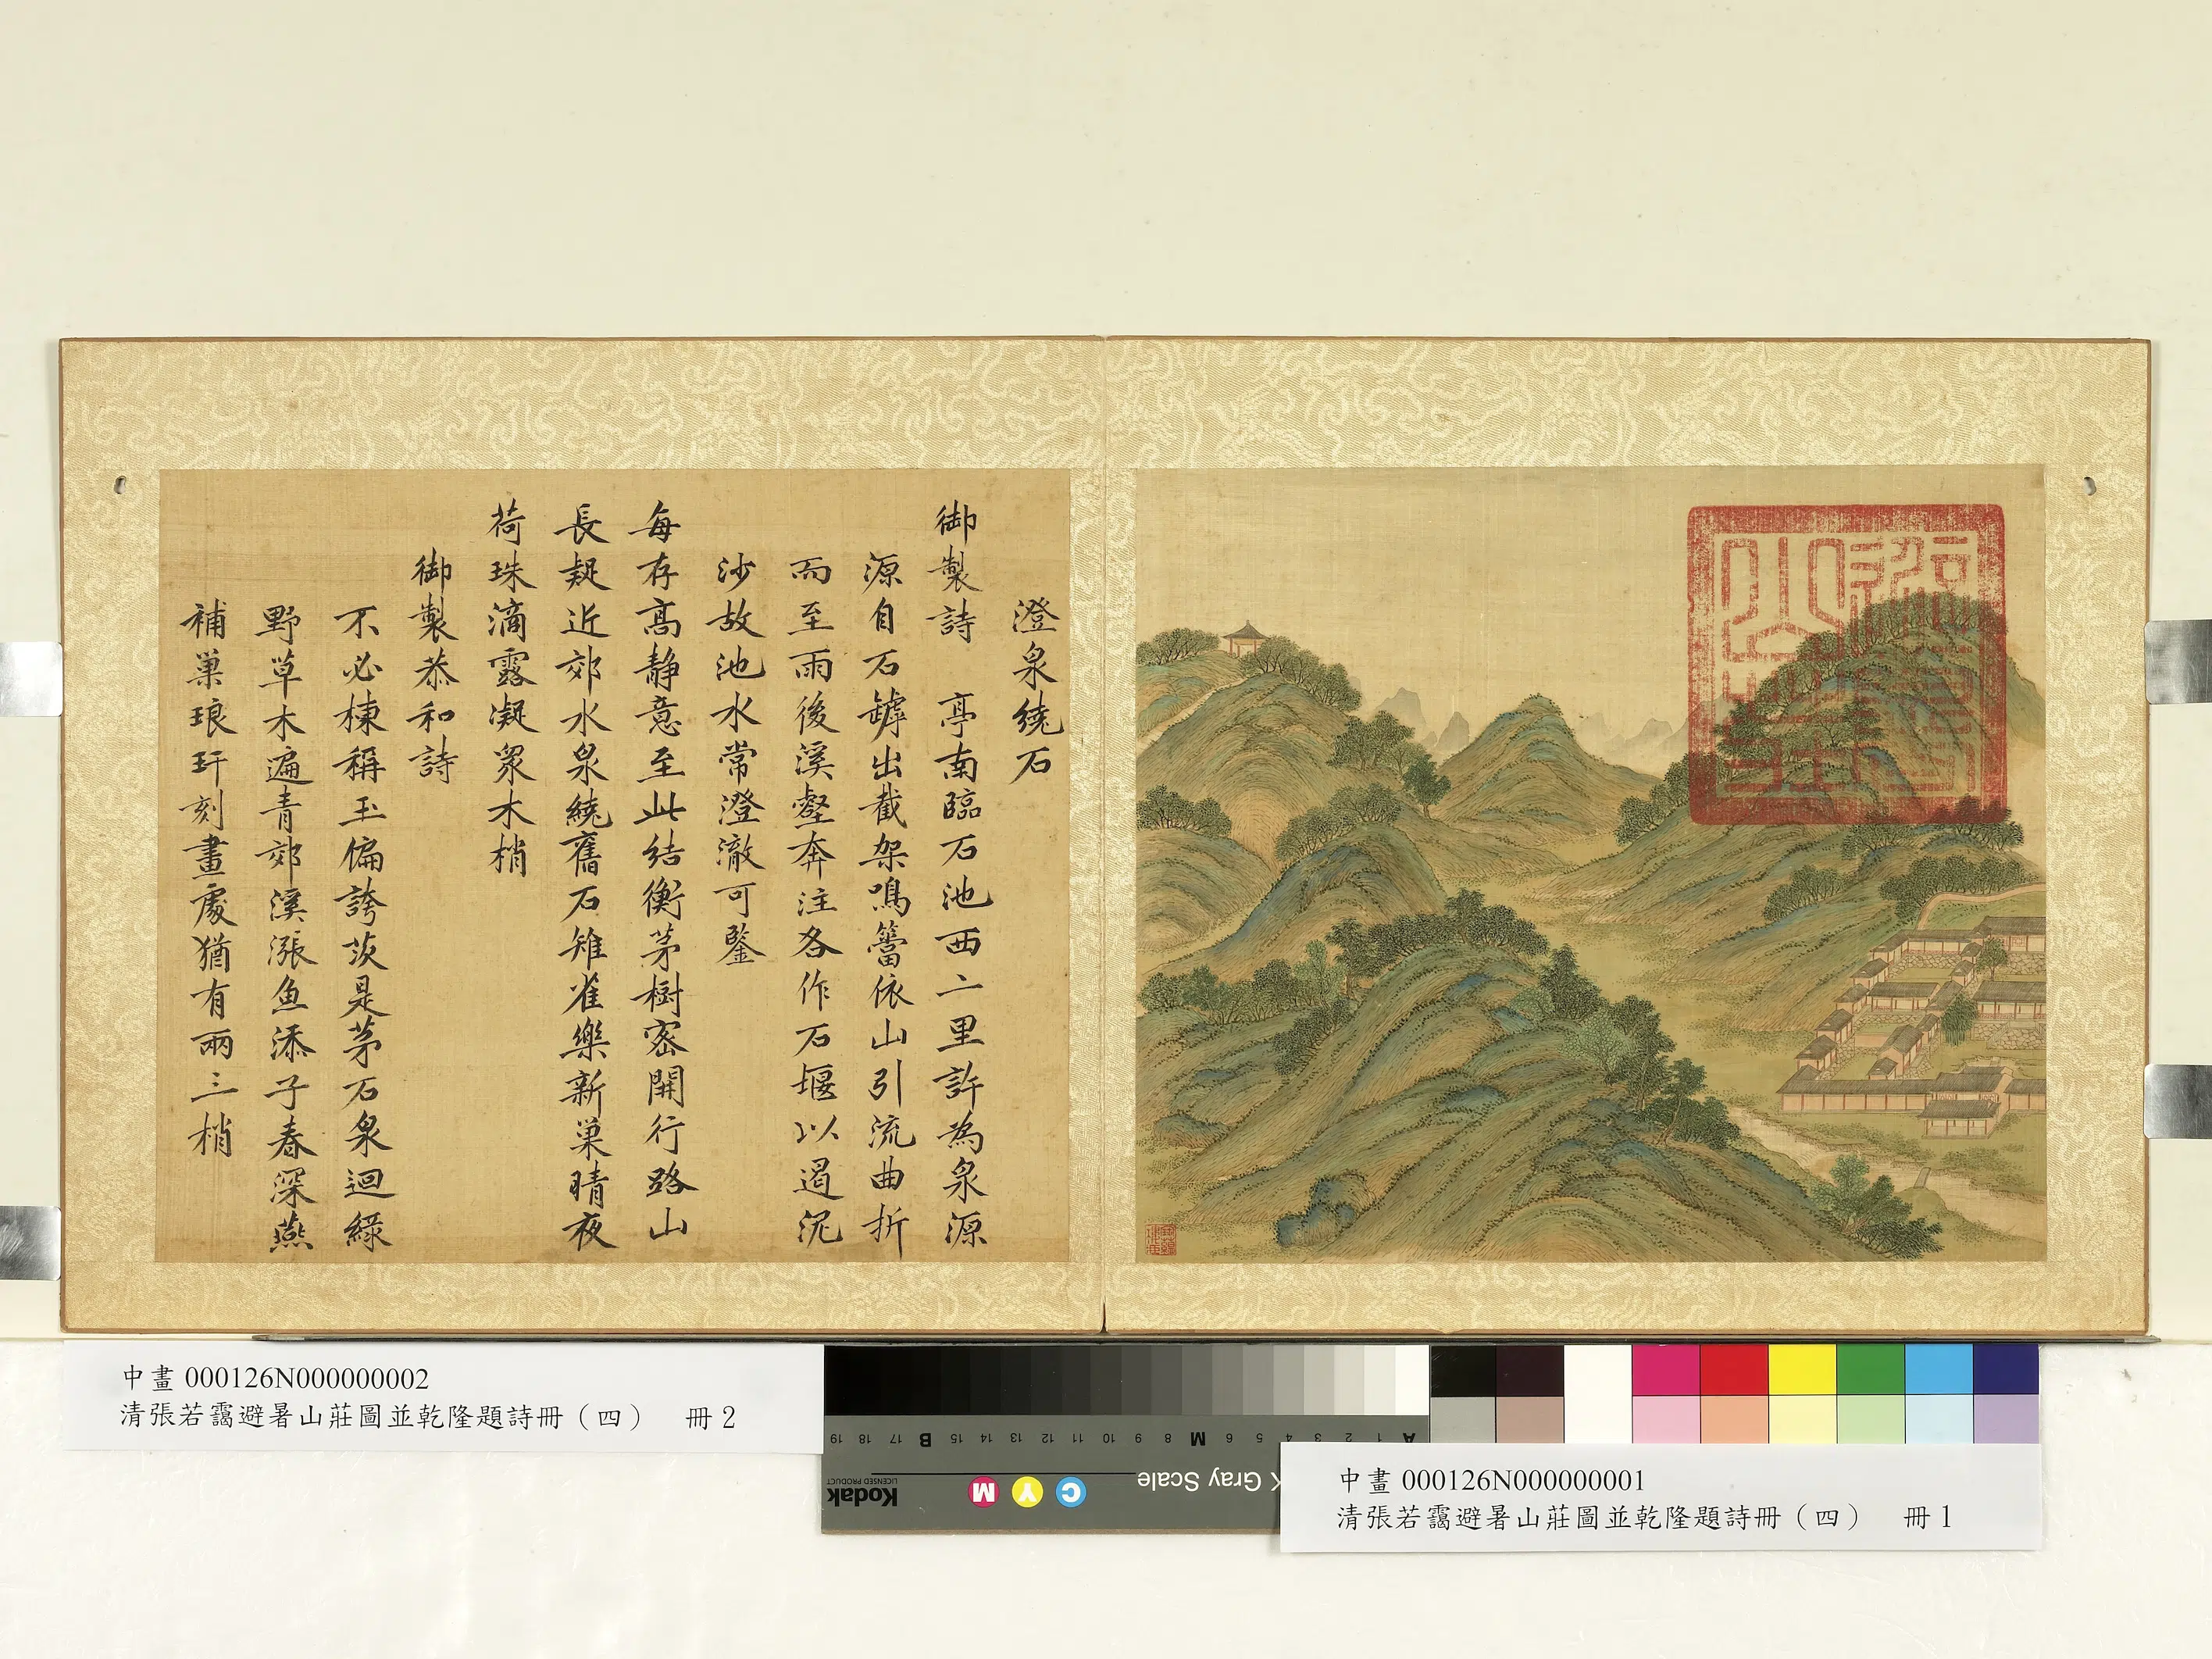 澄泉繞石
御製詩 亭南臨石池西二里許為泉源
源自石罅出截架鳴籌依山引流曲折
而至雨後溪壑奔注各作石堰以遏泥
沙故池水常澄澈可鑒
每存高靜意至此結衡茅樹密開行路山
長疑近郊水泉繞舊石雉雀樂新巢晴夜
荷珠滴露凝眾木梢
御製恭和詩
不必棟稱玉偏誇茨是茅石泉迴綠
野草木遍青郊溪漲魚添子春深燕
補巢琅玕刻畫處猶有兩三梢
中畫 000126N000000002
清張若靄避暑山莊圖並乾隆題詩冊（四） 冊 2
19 18 17 B 16 15 14 13 12 11 10 9 8 M 7 6 5 4 3 2 1 A
Kodak
LICENSED PRODUCT
M Y C
Gray Scale
中畫 000126N000000001
清張若靄避暑山莊圖並乾隆題詩冊（四） 冊 1